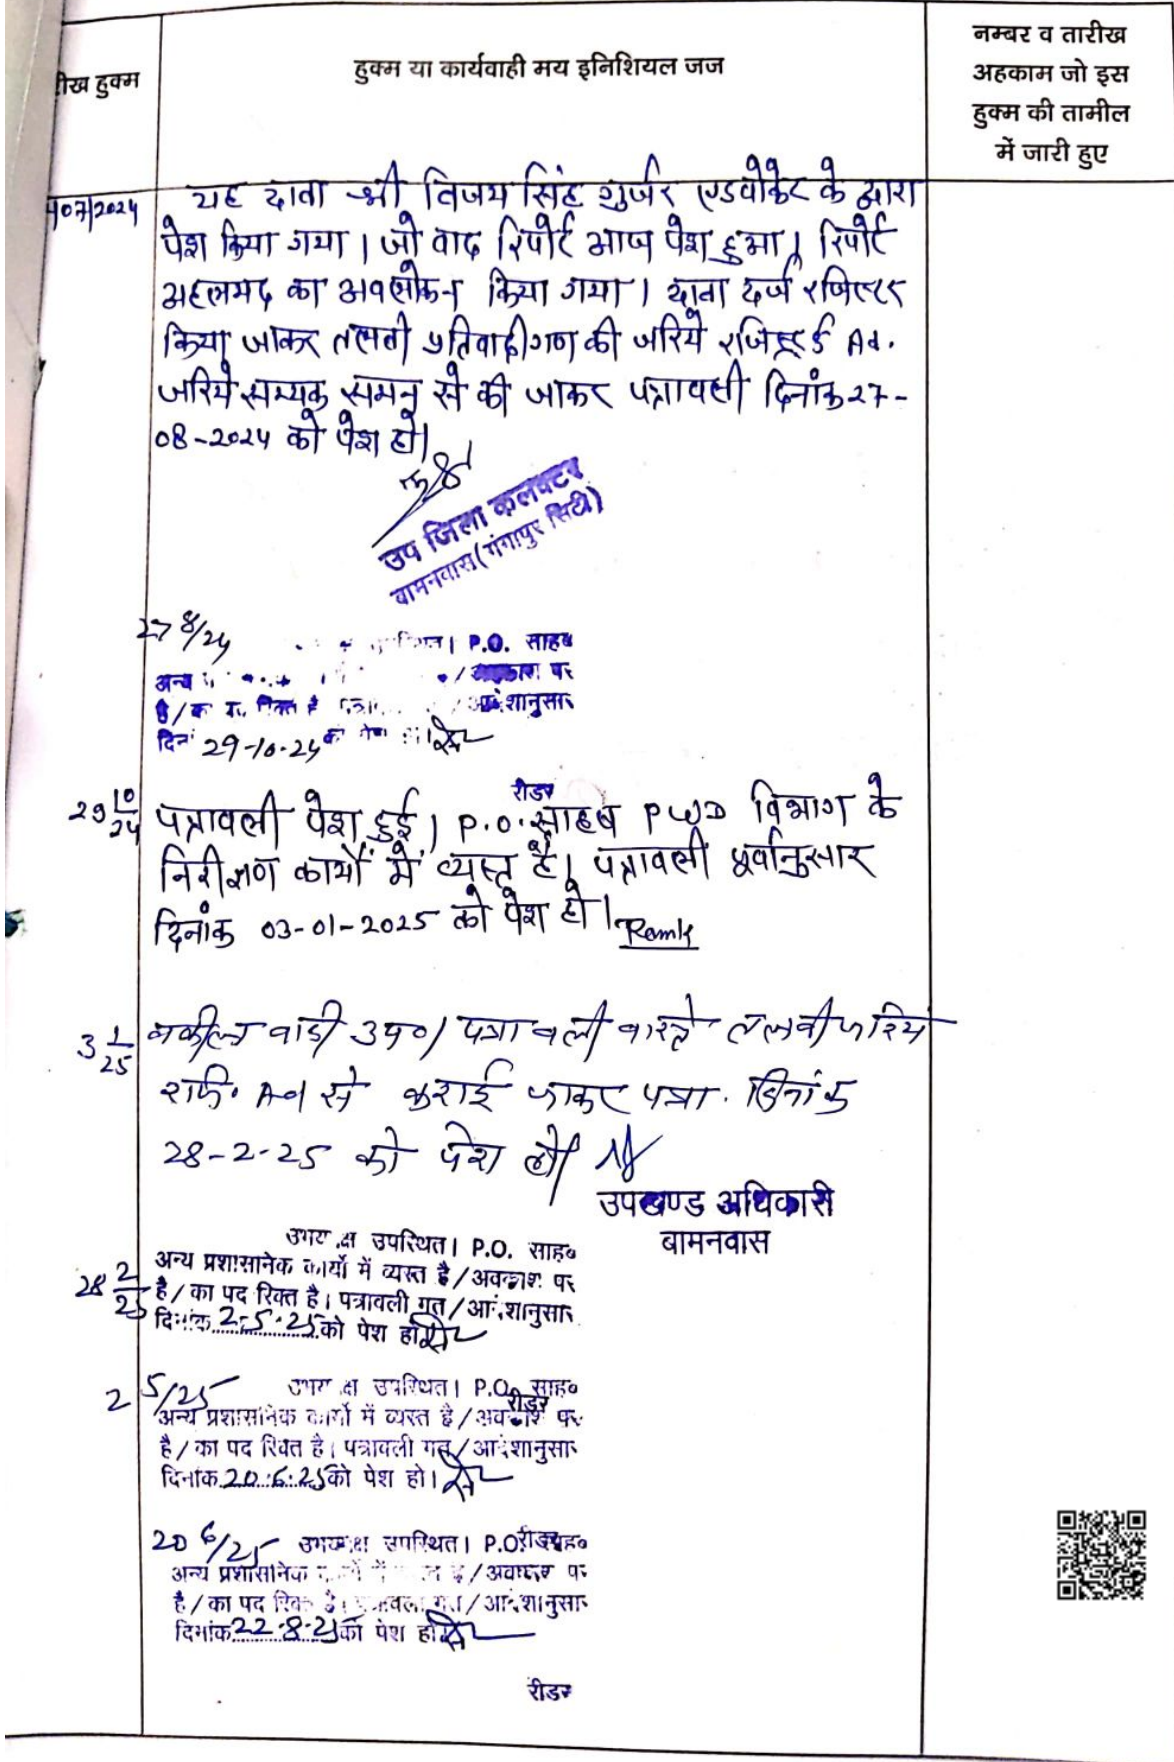 नम्बर व तारीख
रीख हुक्म
हुक्म या कार्यवाही मय इनिशियल जज
अहकाम जो इस
हुक्म की तामील
में जारी हुए
/07/2024
यह दावा श्री विजय सिंह गुर्जर एडवोकेट के द्वारा
पेश किया गया । जो वाद रिपोर्ट आज पेश हुआ । रिपोर्ट
अहलमद का अवलोकन किया गया । दावा दर्ज रजिस्टर
किया जाकर तलबी प्रतिवादीगण की जरिये रजिस्टर्ड Ad.
जरिये सम्यक समन से की जाकर पत्रावली दिनांक 27-
08-2024 को पेश हो।
उप जिला कलक्टर
बामनवास (गंगापुर सिटी)
27 8/24
। P.O. साहब
अन्य / पर
रिक्त है / आदेशानुसार
29-10-24
रीडर
29 10/24
पत्रावली पेश हुई । P.O. साहब PWD विभाग के
निरीक्षण कार्यों में व्यस्त है । पत्रावली पूर्वानुसार
दिनांक 03-01-2025 को पेश हो ।
3 1/25
वकील वादी उप0/ पत्रावली वास्ते तलबी जरिये
रजि. Ad से कराई जाकर पत्रा. दिनांक
28-2-25 को पेश हो/
उपखण्ड अधिकारी
बामनवास
28 2/25
उभय पक्ष उपस्थित। P.O. साहब
अन्य प्रशासानेक कार्यो में व्यस्त है / अवकाश पर
है / का पद रिक्त है। पत्रावली गत / आदेशानुसार
दिनांक 2-5-25 को पेश हो
रीडर
2 5/25
उभय पक्ष उपस्थित। P.O. साहब
अन्य प्रशासनिक कार्यो में व्यस्त है / अवकाश पर
है / का पद रिक्त है। पत्रावली गत / आदेशानुसार
दिनांक 20.6.25 को पेश हो।
रीडर
20 6/25
उभय पक्ष उपस्थित। P.O. साहब
अन्य प्रशासनिक / अवकाश पर
है / का पद रिक्त है। पत्रावली गत / आदेशानुसार
दिनांक 22-8-25 को पेश हो
रीडर